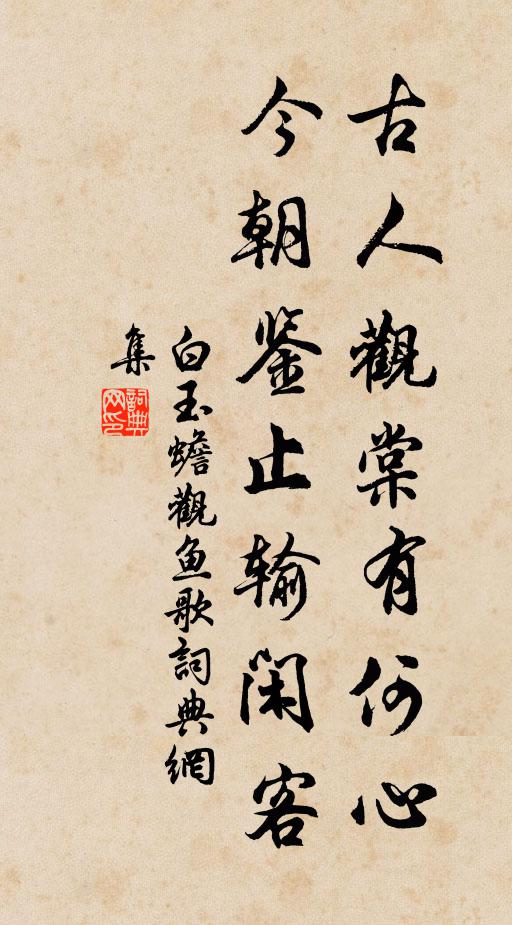 古人觀棠有何心
今朝鉴止输闲客
白玉蟾觀鱼歌詞典網
集
詞典网印